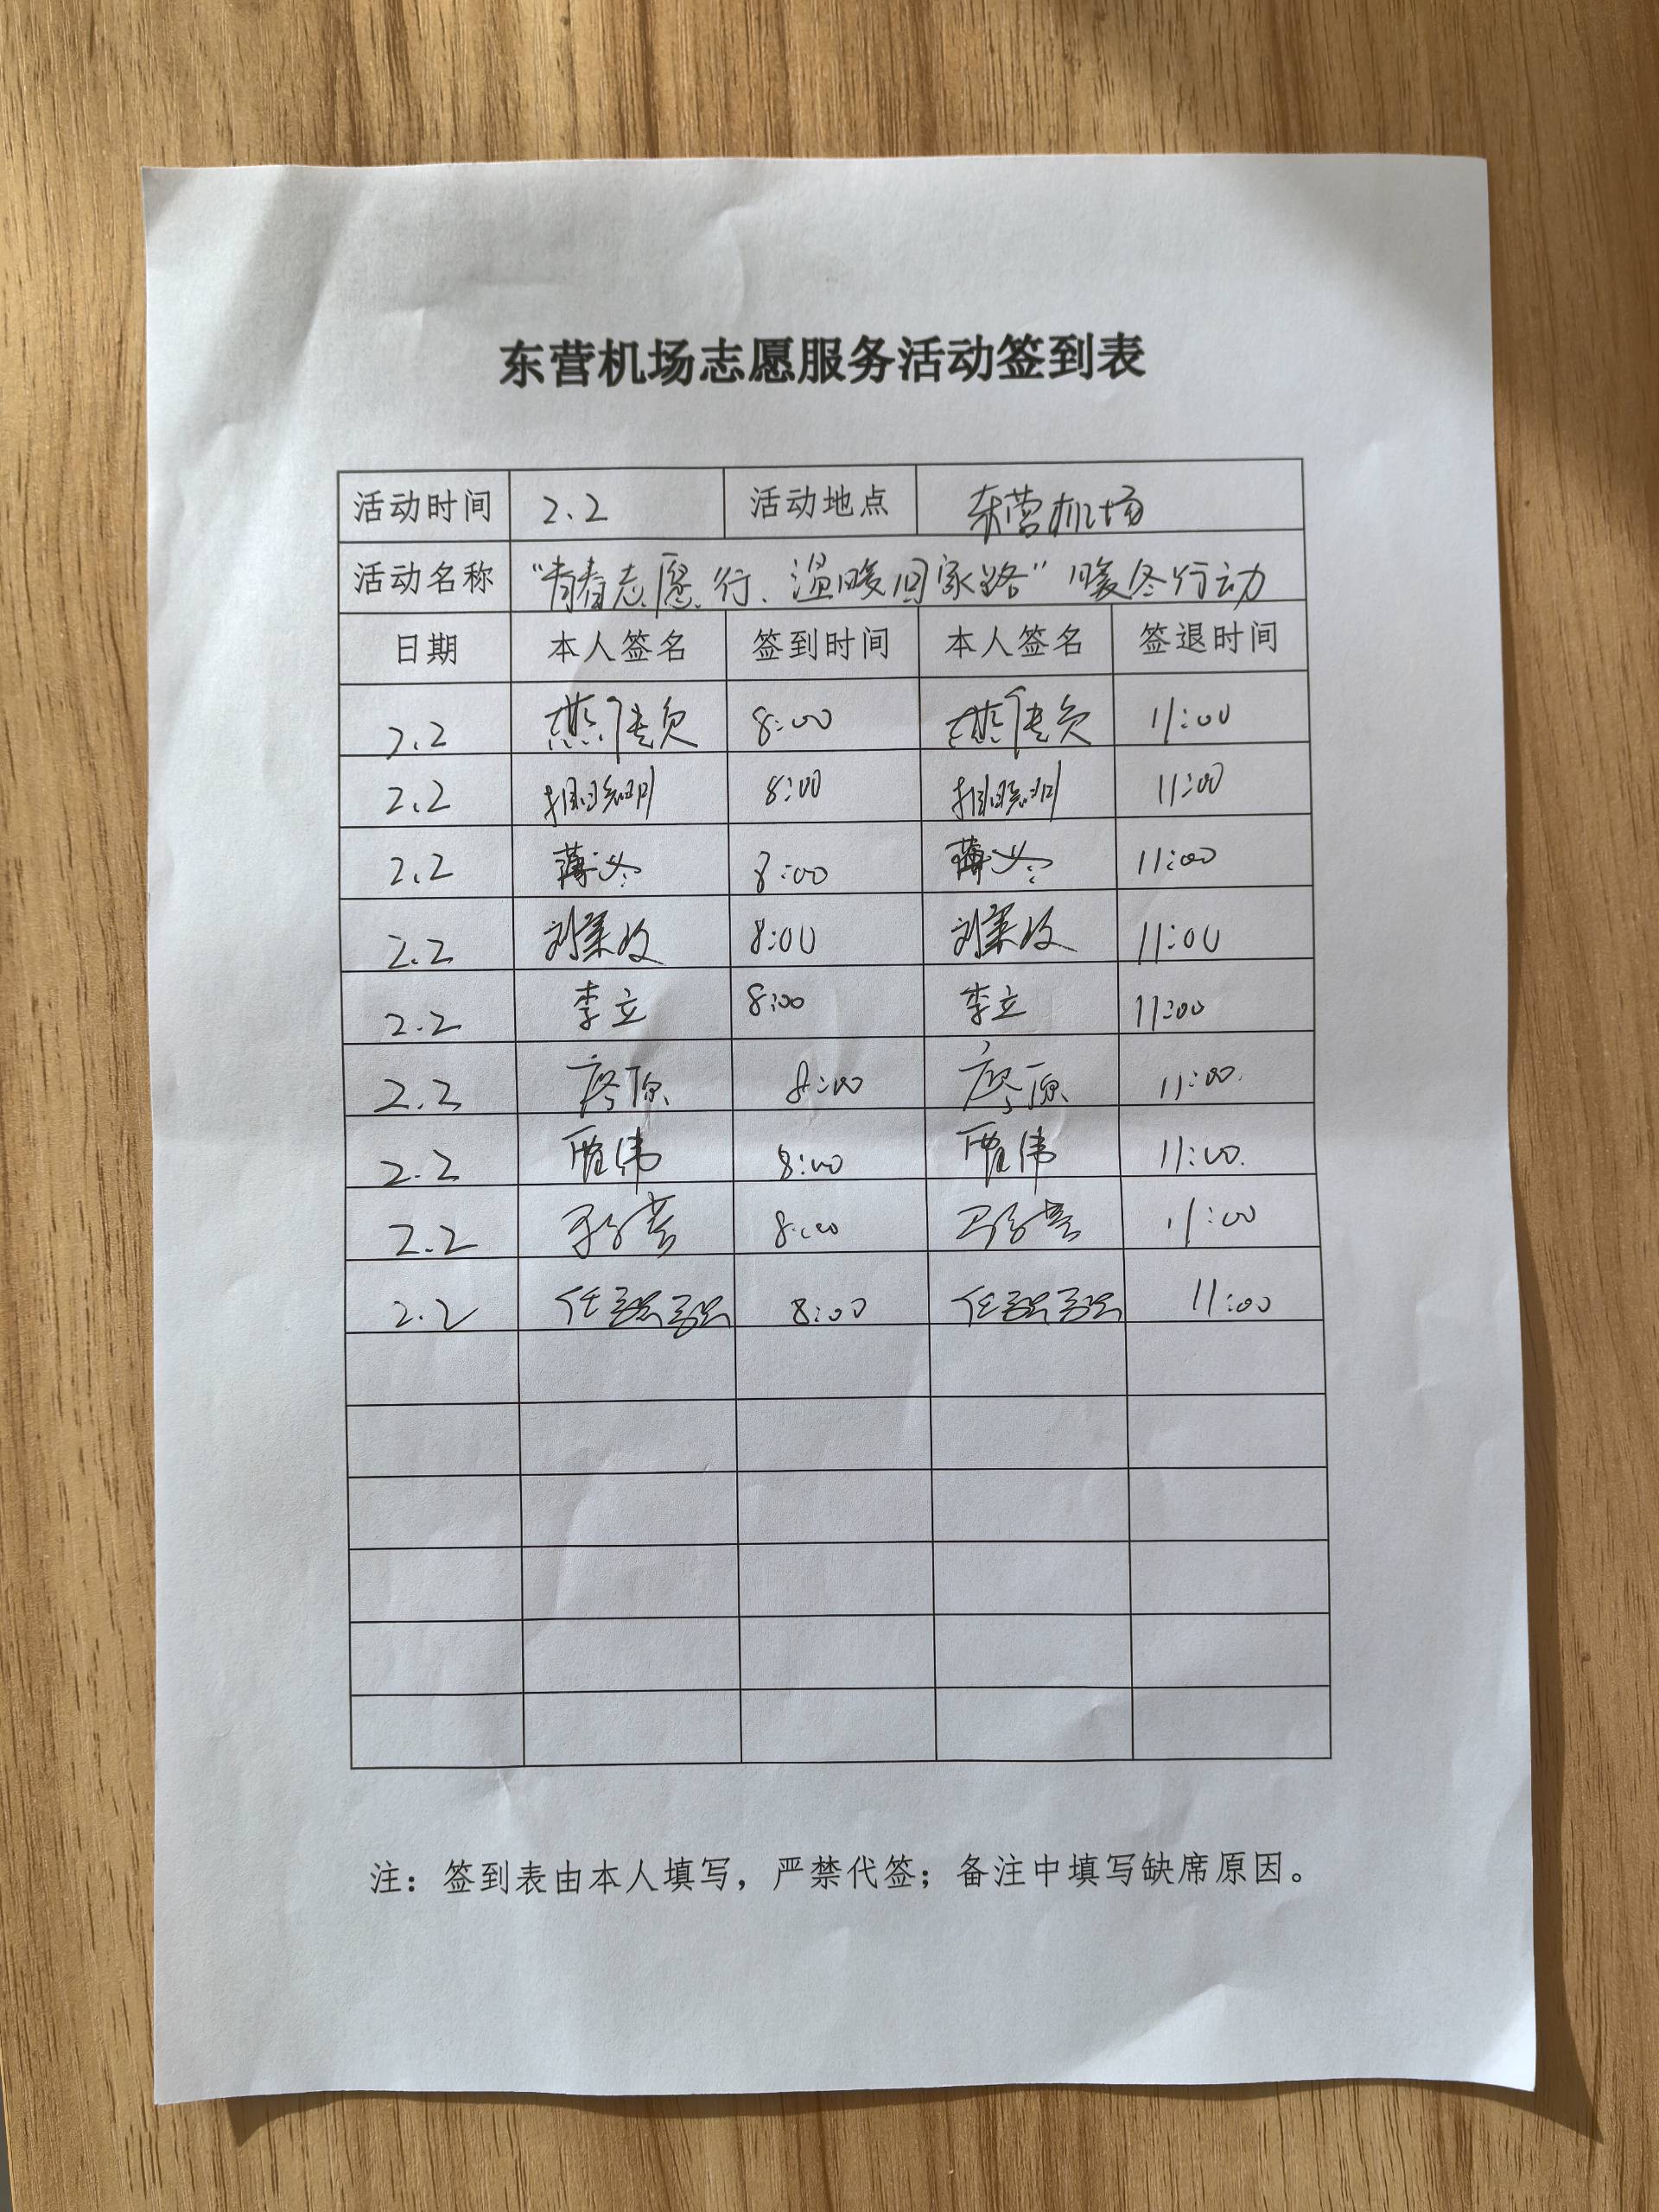 东营机场志愿服务活动签到表
活动时间 2.2 活动地点 东营机场
活动名称 “青春志愿行、温暖回家路”暖冬行动
日期 本人签名 签到时间 本人签名 签退时间
2.2 8:00 11:00
2.2 8:00 11:00
2.2 薄 8:00 薄 11:00
2.2 刘 8:00 刘 11:00
2.2 李立 8:00 李立 11:00
2.2 8:00 11:00.
2.2 伟 8:00 伟 11:00.
2.2 8:00 11:00
2.2 任 8:00 任 11:00
注：签到表由本人填写，严禁代签；备注中填写缺席原因。